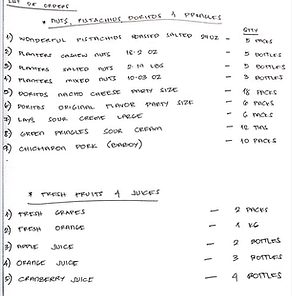 LIST OF ORDERS
* NUTS, PISTACHIOS, DORITOS & PRINGLES
QTY
1) WONDERFUL PISTACHIOS ROASTED SALTED 24OZ - 5 PACKS
2) PLANTERS CASHEW NUTS 18.2 OZ - 5 BOTTLES
3) PLANTERS SALTED NUTS 2.19 LBS - 5 BOTTLES
4) PLANTERS MIXED NUTS 10.03 OZ - 3 BOTTLES
5) DORITOS NACHO CHEESE PARTY SIZE - 18 PACKS
6) DORITOS ORIGINAL FLAVOR PARTY SIZE - 6 PACKS
7) LAYS SOUR CREME LARGE - 6 PACKS
8) GREEN PRINGLES SOUR CREAM - 12 TINS
9) CHICHARON PORK (BABOY) - 10 PACKS
* FRESH FRUITS & JUICES
1) FRESH GRAPES - 2 PACKS
2) FRESH ORANGE - 1 KG
3) APPLE JUICE - 2 BOTTLES
4) ORANGE JUICE - 3 BOTTLES
5) CRANBERRY JUICE - 4 BOTTLES